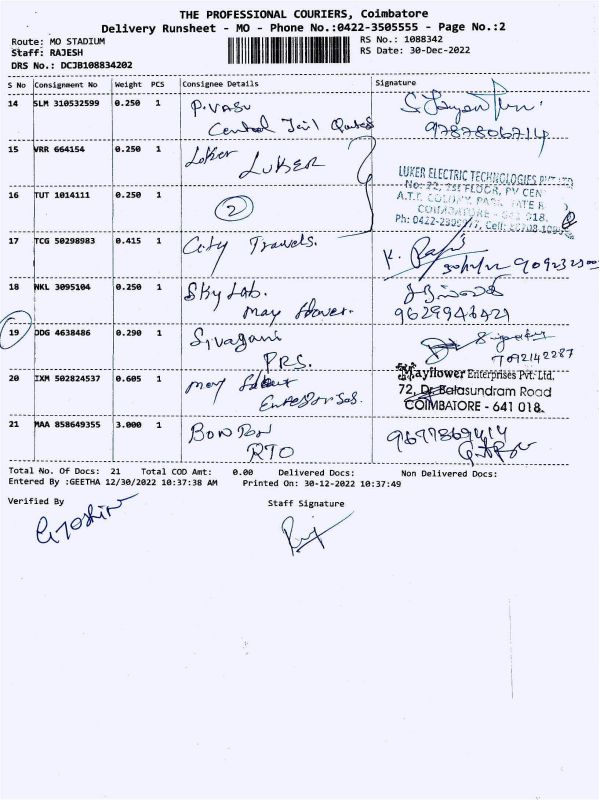 THE PROFESSIONAL COURIERS, Coimbatore
Delivery Runsheet - MO - Phone No.:0422-3505555 - Page No.:2
Route: MO STADIUM
Staff: RAJESH
DRS No.: DCJB108834202
RS No.: 1088342
RS Date: 30-Dec-2022
S No Consignment No Weight PCS Consignee Details Signature
14 SLM 310532599 0.250 1 P.VASU
Central Jail
9787806714
15 VRR 664154 0.250 1 Loker LUKER
LUKER ELECTRIC TECHNOLOGIES PVT LTD
No: 22, 1st FLOOR, PV CEN
A.T.T. COLONY, PARK GATE R
COIMBATORE - 641 018.
16 TUT 1014111 0.250 1 2
17 TCG 50298983 0.415 1 City Travels.
K.
18 NKL 3095104 0.250 1 Sky Lab.
May flower.
9629946421
19 DDG 4638486 0.290 1 Sivagami
PRS.
7092142287
20 IXM 502824537 0.605 1 May
Mayflower Enterprises Pvt. Ltd.
72, Dr. Balasundram Road
COIMBATORE - 641 018.
21 MAA 858649355 3.000 1 BONTON
RTO
9677869414
Total No. Of Docs: 21 Total COD Amt: 0.00 Delivered Docs: Non Delivered Docs:
Entered By :GEETHA 12/30/2022 10:37:38 AM Printed On: 30-12-2022 10:37:49
Verified By Staff Signature